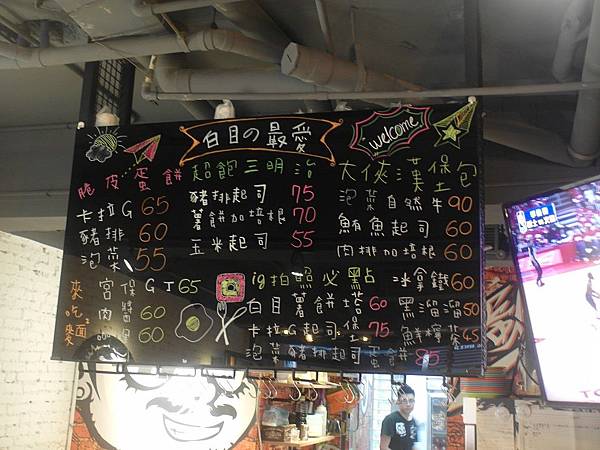 白目の最愛
welcome
脆皮蛋餅
卡拉G 65
豬排 60
泡菜 55
超飽三明治
豬排起司 75
薯餅加培根 70
玉米起司 55
大俠漢堡包
泡菜自然牛 90
鮪魚起司 60
肉排加培根 60
來吃麵
宮保GJ 65
肉醬 60
60
ig拍照必點
白目薯餅塔 60
卡拉G起司堡 75
泡菜豬排起司蛋餅 85
冰拿鐵 60
黑溜溜 50
鮮檸茶 45